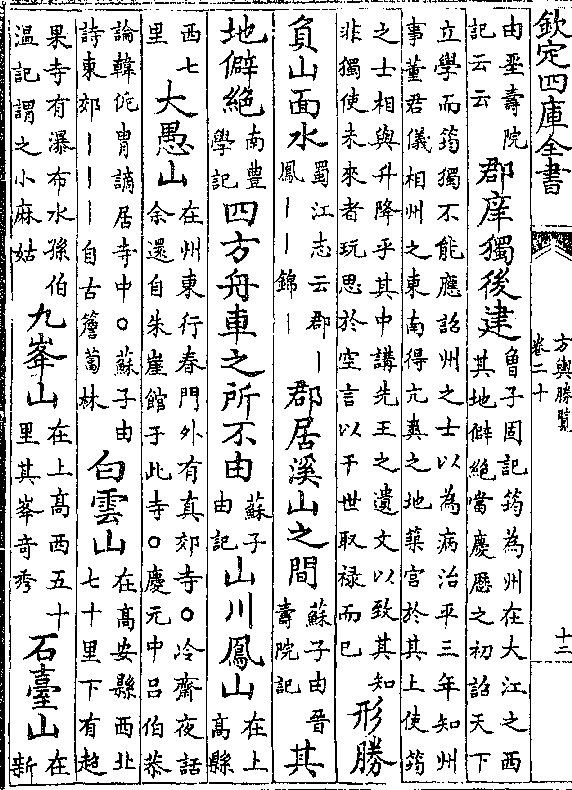 欽定四庫全書
方輿勝覽
卷二十
十二
由聖壽院
記云云
郡庠獨後建
魯子固記筠為州在大江之西
其地僻絕當慶歷之初詔天下
立學而筠獨不能應詔州之士以為病治平三年知州
事董君儀相州之東南得亢爽之地築宮於其上使筠
之士相與升降乎其中講先王之遺文以致其知
非獨使未來者玩思於空言以干世取禄而已
形勝
負山面水
蜀江志云郡丨
鳳丨丨錦丨
郡居溪山之間
蘇子由晉
壽院記
其
地僻絕
南豊
學記
四方舟車之所不由
蘇子
由記
山川
鳳山
在上
高縣
西七
里
大愚山
在州東行春門外有真郊寺○冷齋夜話
余還自朱崖館于此寺○慶元中吕伯恭
論韓侂胄謫居寺中○蘇子由
詩東郊丨丨丨自古簷蔔林
白雲山
在髙安縣西北
七十里下有超
果寺有瀑布水孫伯
温記謂之小麻姑
九峯山
在上髙西五十
里其峯奇秀
石臺山
在
新